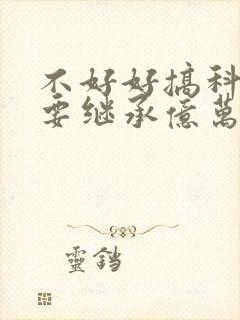 不好好搞科
要继承億萬
靈鐺